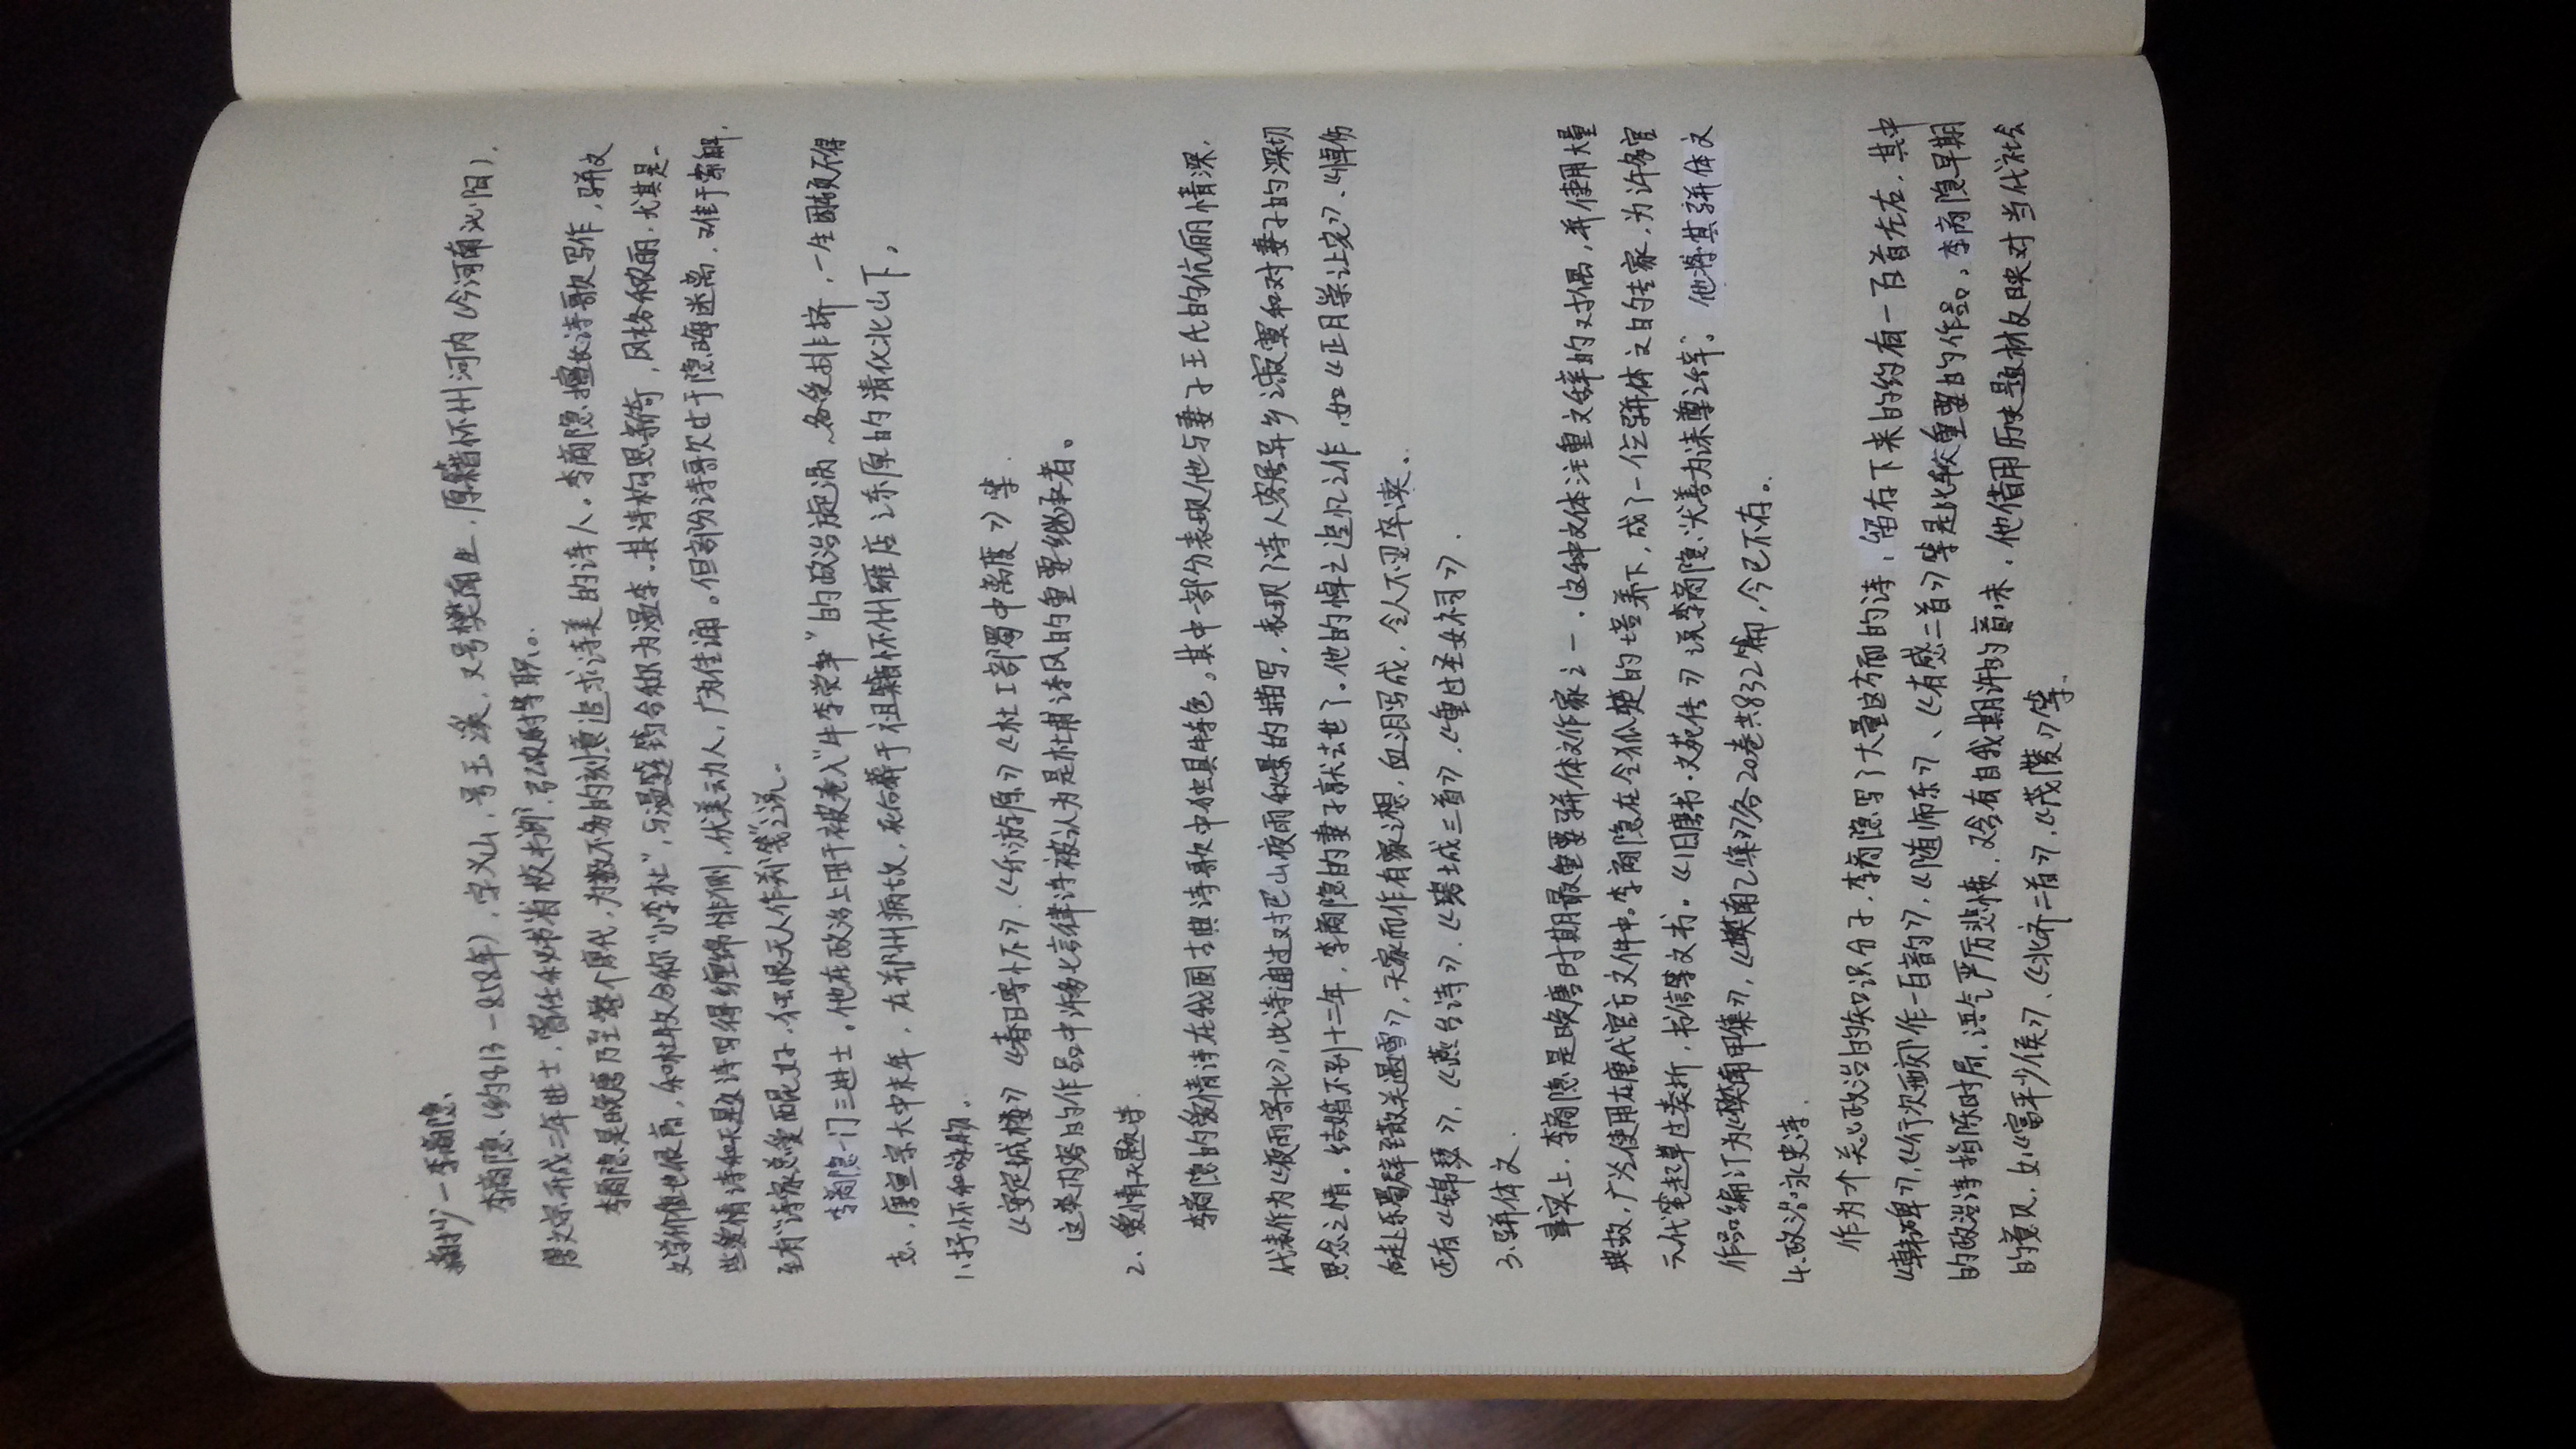 摘抄—李商隐
李商隐(约813-858年),字义山,号玉溪,又号樊南生,原籍怀州河内(今河南沁阳),
唐文宗开成二年进士,曾任秘书省校书郎,弘农尉等职。
李商隐是晚唐乃至整个唐代,为数不多的刻意追求诗美的诗人。李商隐擅长诗歌写作,骈文
文学价值也很高,和杜牧合称“小李杜”,与温庭筠合称为温李.其诗构思新奇,风格秾丽.尤其是一
些爱情诗和无题诗写得缠绵悱恻,优美动人,广为传诵。但部分诗歌过于隐晦迷离,难于索解,
至有“诗家总爱西昆好,独恨无人作郑笺”之说.
李商隐一门三进士。他在政治上由于被卷入“牛李党争”的政治旋涡、备受排挤,一生困顿不得
志,唐宣宗大中末年,在郑州病故,死后葬于祖籍怀州雍店之东原的清化北山下。
1、抒怀和咏物。
《安定城楼》《春日寄怀》.《乐游原》《杜工部蜀中离席》等.
这类内容的作品中许多七言律诗被认为是杜甫诗风的重要继承者。
2、爱情无题诗.
李商隐的爱情诗在我国古典诗歌中独具特色。其中一部分表现他与妻子王氏的伉俪情深,
代表作为《夜雨寄北》,此诗通过对巴山夜雨秋景的描写,表现了诗人客居异乡之寂寞和对妻子的深切
思念之情。结婚不到十二年,李商隐的妻子就去世了。他的悼亡追忆之作,如《正月崇让宅》、《悼伤
后赴东蜀辟至散关遇雪》,无家而作有家之想,血泪写成,令人不忍卒读.
还有《锦瑟》,《燕台诗》.《碧城三首》.《重过圣女祠》.
3、骈体文.
事实上,李商隐是晚唐时期最重要骈体文作家之一.这种文体注重文辞的对偶,并使用大量
典故,广泛使用在唐代官方文件中。李商隐在令狐楚的培养下,成了一位骈体文的专家,为许多官
员代笔起草过奏折,书信等文书。《旧唐书.文苑传》说李商隐“尤善为诔奠之辞”。他将其骈体文
作品编订为《樊南甲集》,《樊南乙集》各20卷共832篇,今已不存。
4.政治咏史诗.
作为一个关心政治的知识分子,李商隐写了大量这方面的诗,留存下来的约有一百首左右,其中
《韩碑》,《行次西郊作一百韵》,《随师东》、《有感二首》等是比较重要的作品。李商隐早期
的政治诗指陈时局,语气严厉悲愤,又含有自我期许的意味.他借用历史题材反映对当代社会
的意见.如《富平少侯》、《北齐二首》.《茂陵》等.